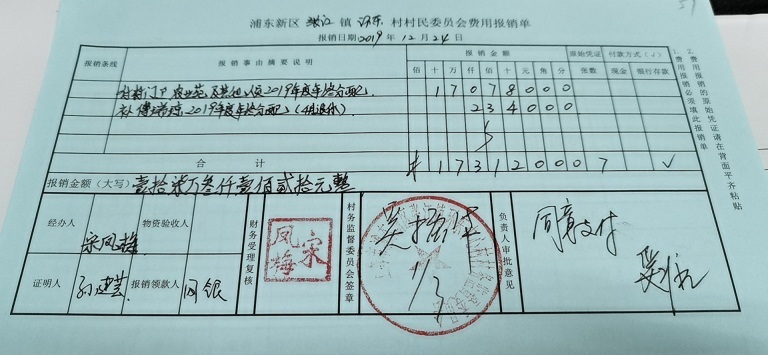 浦东新区 张江 镇 沔东 村村民委员会费用报销单
报销日期2019年12月24日
报销条线 报销事由摘要说明 报销金额 原始凭证 付款方式(√)
佰 十 万 仟 佰 十 元 角 分 张数 现金 银行存款
2019年度年终分配 1 7 0 7 8 0 0 0
补 2019年度年终分配 (4月退休) 2 3 4 0 0 0
合计 ¥ 1 7 3 1 2 0 0 0 7 √
报销金额(大写)壹拾柒万叁仟壹佰贰拾元整
经办人 宋凤梅 物资验收人
财务受理复核
宋凤梅
村务监督委员会签章
11/3
负责人审批意见
同意支付
证明人 报销领款人 网银
1、费用报销必须填此报销单
2、费用报销的原始凭证请在背面平齐粘贴